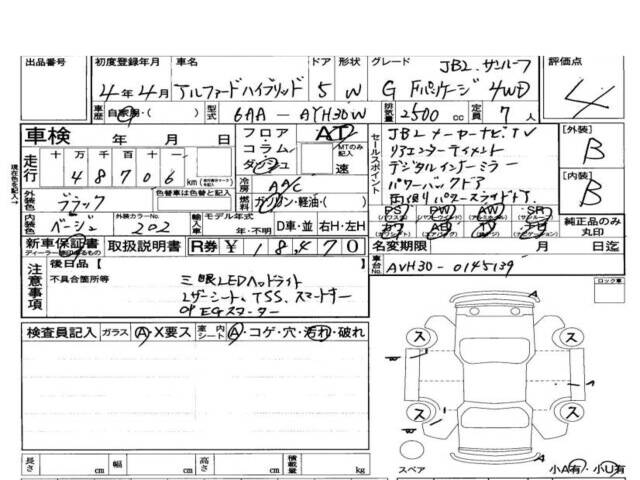 出品番号 初度登録年月 車名 ドア 形状 グレード JBL.サンルーフ 評価点
4年4月 アルファードハイブリッド 5 W G Fパッケージ 4WD 4
車歴 自家用・( ) 型式 6AA-AYH30W 排気量 2500 cc 定員 7 人
車検 年 月 日 フロア AT セールスポイント JBLメーカーナビ.TV [外装]
走行 十万千百十 48706 km コラム MTのみ記入 リアエンターテイメント B
ダッシュ 速 デジタルインナーミラー
現在色を記入→ 外装色 ブラック 色替車は色替と記入 冷房 AAC パワーバックドア [内装]
燃料 ガソリン・軽油・( ) 両側パワースライドドア B
内装色 ベージュ 外装カラーNo. 202 輸入車 モデル年式 年・不明 D車・並 右H・左H PS PW AW SR 純正品のみ丸印
カワ AB TV ナビ
新車保証書 ディーラー印のあるもの 取扱説明書 R券 ¥18,470 名変期限 月 日迄
注意事項 後日品【 】 車台No. AVH30-0145139
不具合箇所等 三眼LEDヘッドライト
レザーシート、TSS、スマートキー
OP EGスターター
ロック車
検査員記入 ガラス A・X要ス 室内シート A・コゲ・穴・汚れ・破れ
ス ス
A
ス ス
長さ cm 幅 cm 高さ cm 積載量 kg
スペア 小A有・小U有